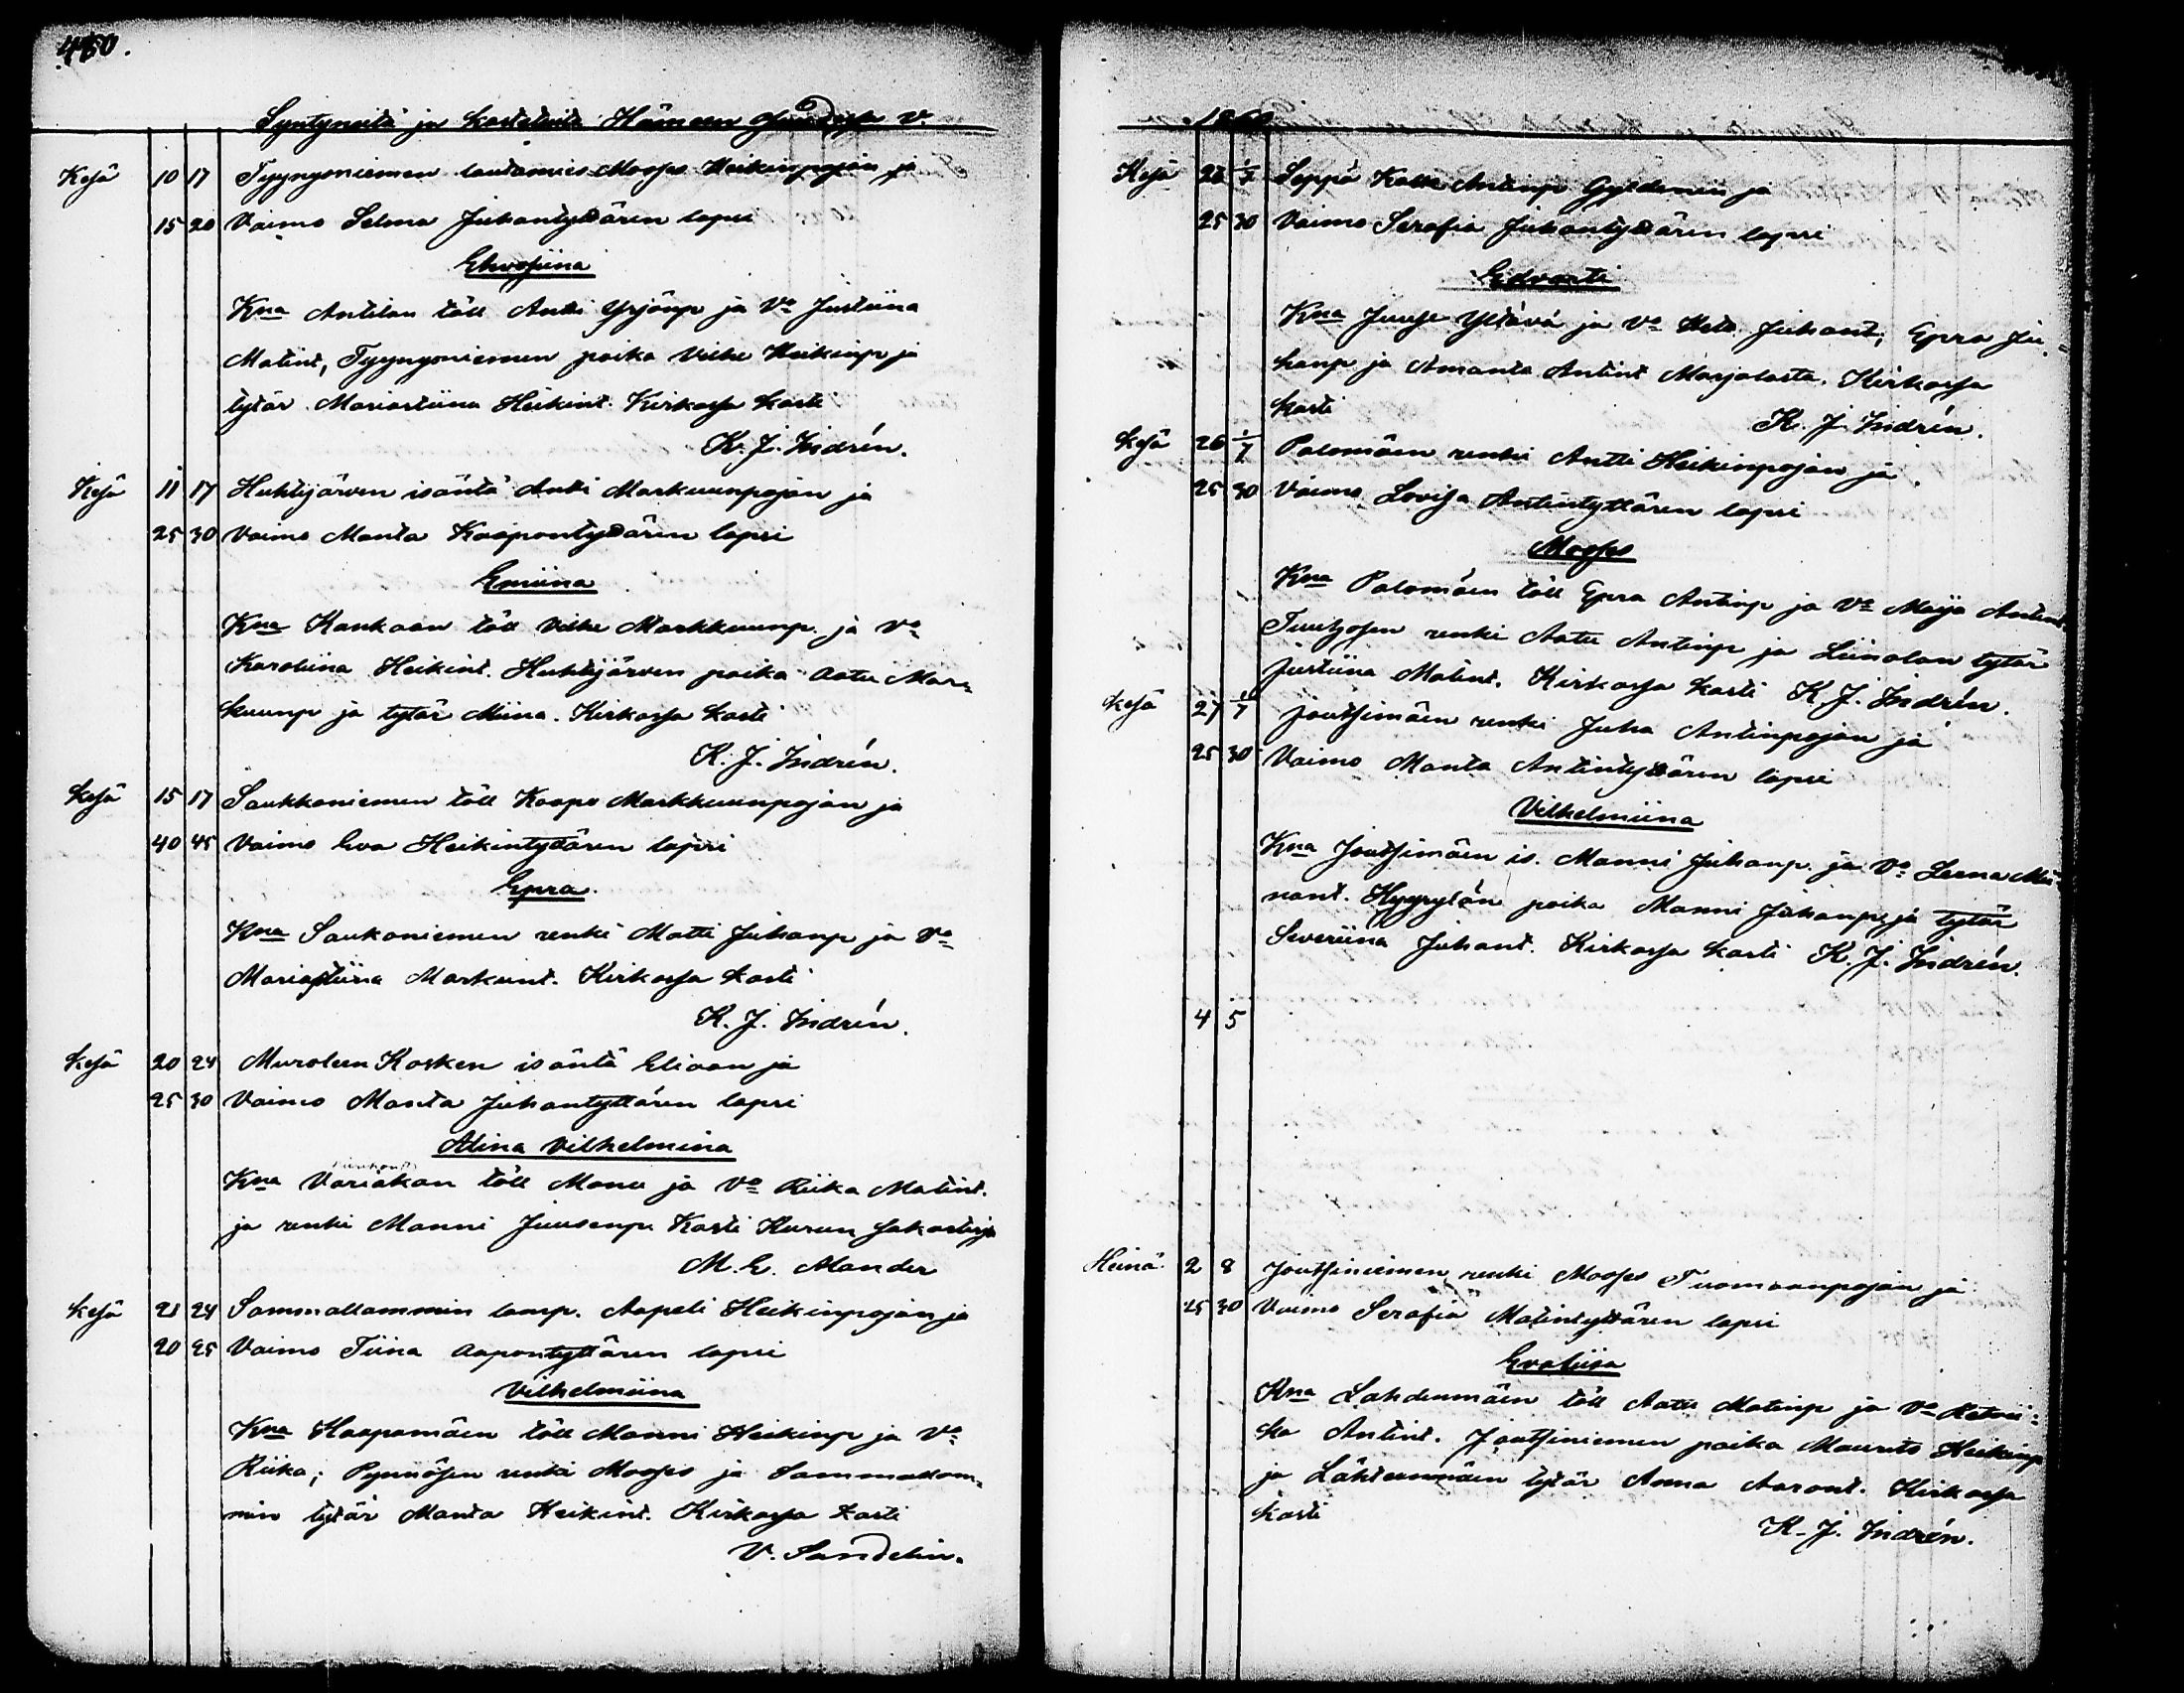 450.
Syntyneitä ja kastetuita Hämeen V.
Kesä 10 17 Tyynyniemen lautamies Mooses Heikinpojan ja
15 20 Vaimo Selma Juhantyttären lapsi
Ehvosiina
Kna Antilan täll Antti Yrjönp ja Vo Justiina
Matint, Tyynyniemen poika Vilhe Heikinp ja
tytär Mariastiina Heikint. Kirkossa kasti
K. J. Indrén.
Kesä 11 17 Huhtijärven isäntä Antti Markuunpojan ja
25 30 Vaimo Manta Kaapontyttären lapsi
Emiina
Kna Kankaan täll Vilhe Markkuunp. ja Vo
Karoliina Heikint. Huhtijärven poika Aatu Mar-
kuunp ja tytär Miina. Kirkossa kasti
K. J. Indrén.
Kesä 15 17 Saukkoniemen täll Kaapo Markkuunpojan ja
40 45 Vaimo Eva Heikintyttären lapsi
Epra.
Kna Saukoniemen renki Matti Juhanp ja Vo
Mariastiina Markunt. Kirkossa kasti
K. J. Indrén.
Kesä 20 24 Muroleen Kosken isäntä Eliaan ja
25 30 Vaimo Manta Juhantyttären lapsi
Alina Vilhelmina
Kna Variakan täll Manu ja Vo Riika Matint.
ja renki Manni Juusenp. Kasti Kurun
M. E. Alander
Kesä 21 24 Sammallammin lamp. Aapeli Heikinpojan ja
20 25 Vaimo Tiina Aapontyttären lapsi
Vilhelmiina
Kna Haapamäen täll Manni Heikinp ja Vo
Riika; Pynnösen renki Mooses ja Sammallam-
min tytär Manta Heikint. Kirkossa kasti
V. Sandelin.
Kesä 1/7 Seppä Kalle Antinp Gyldenin ja
25 30 Vaimo Serafia Juhantyttären lapsi
Edvarti
Kna Juuse Ylävä ja Vo Heta Juhant; Epra Ju-
hanp ja Amanta Antint Marjalasta. Kirkossa
kasti K. J. Indrén.
Kesä 26 1/7 Palomäen renki Antti Heikinpojan ja
25 30 Vaimo Lovisa Antintyttären lapsi
Mooses
Kna Palomäen täll Epra Antinp ja Vo Maija Antint.
renki Aatu Antinp ja Liinalan tytär
Justiina Matint. Kirkossa kasti K. J. Indrén.
Kesä 27 1/7 Joutsimäen renki Juha Antinpojan ja
25 30 Vaimo Manta Antintyttären lapsi
Vilhelmiina
Kna Joutsimäen is. Manni Juhanp. ja Vo Leena
nant. Hyyrylän poika Manni Juhanp ja tytär
Severiina Juhant. Kirkossa kasti K. J. Indrén.
4 5
Heinä 2 8 Joutsiniemen renki Mooses Tuomaanpojan ja
25 30 Vaimo Serafia Matintyttären lapsi
Evaliisa
Kna Lahdenmäen täll Aatu Matinp ja Vo
ka Antint. Joutsiniemen poika Maurits Heikinp
ja Lähteenmäen tytär Anna Aaront. Kirkossa
kasti K. J. Indrén.